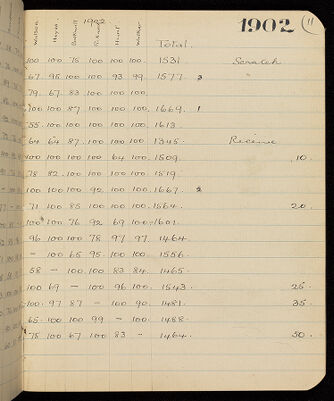 1902 11
1902
Walker Total
100 100 75 100 100 100 1531 Scratch
67 95 100 100 93 99 1577 3 "
79 67 83 100 100 100
100 100 87 100 100 100 1669 1
55 100 100 100 100 100 1613
64 64 87 100 100 100 1345 Receive
100 100 100 100 64 100 1509 10
78 82 100 100 100 100 1519
100 100 100 92 100 100 1667 2
71 100 85 100 100 100 1564 20
100 100 76 92 69 100 1601
96 100 100 78 97 97 1464
— 100 65 95 100 100 1556
58 — 100 100 83 84 1465
100 69 — 100 96 100 1543 25
100 97 87 — 100 90 1481 35
65 100 100 99 — 100 1488
75 100 67 100 83 — 1464 50